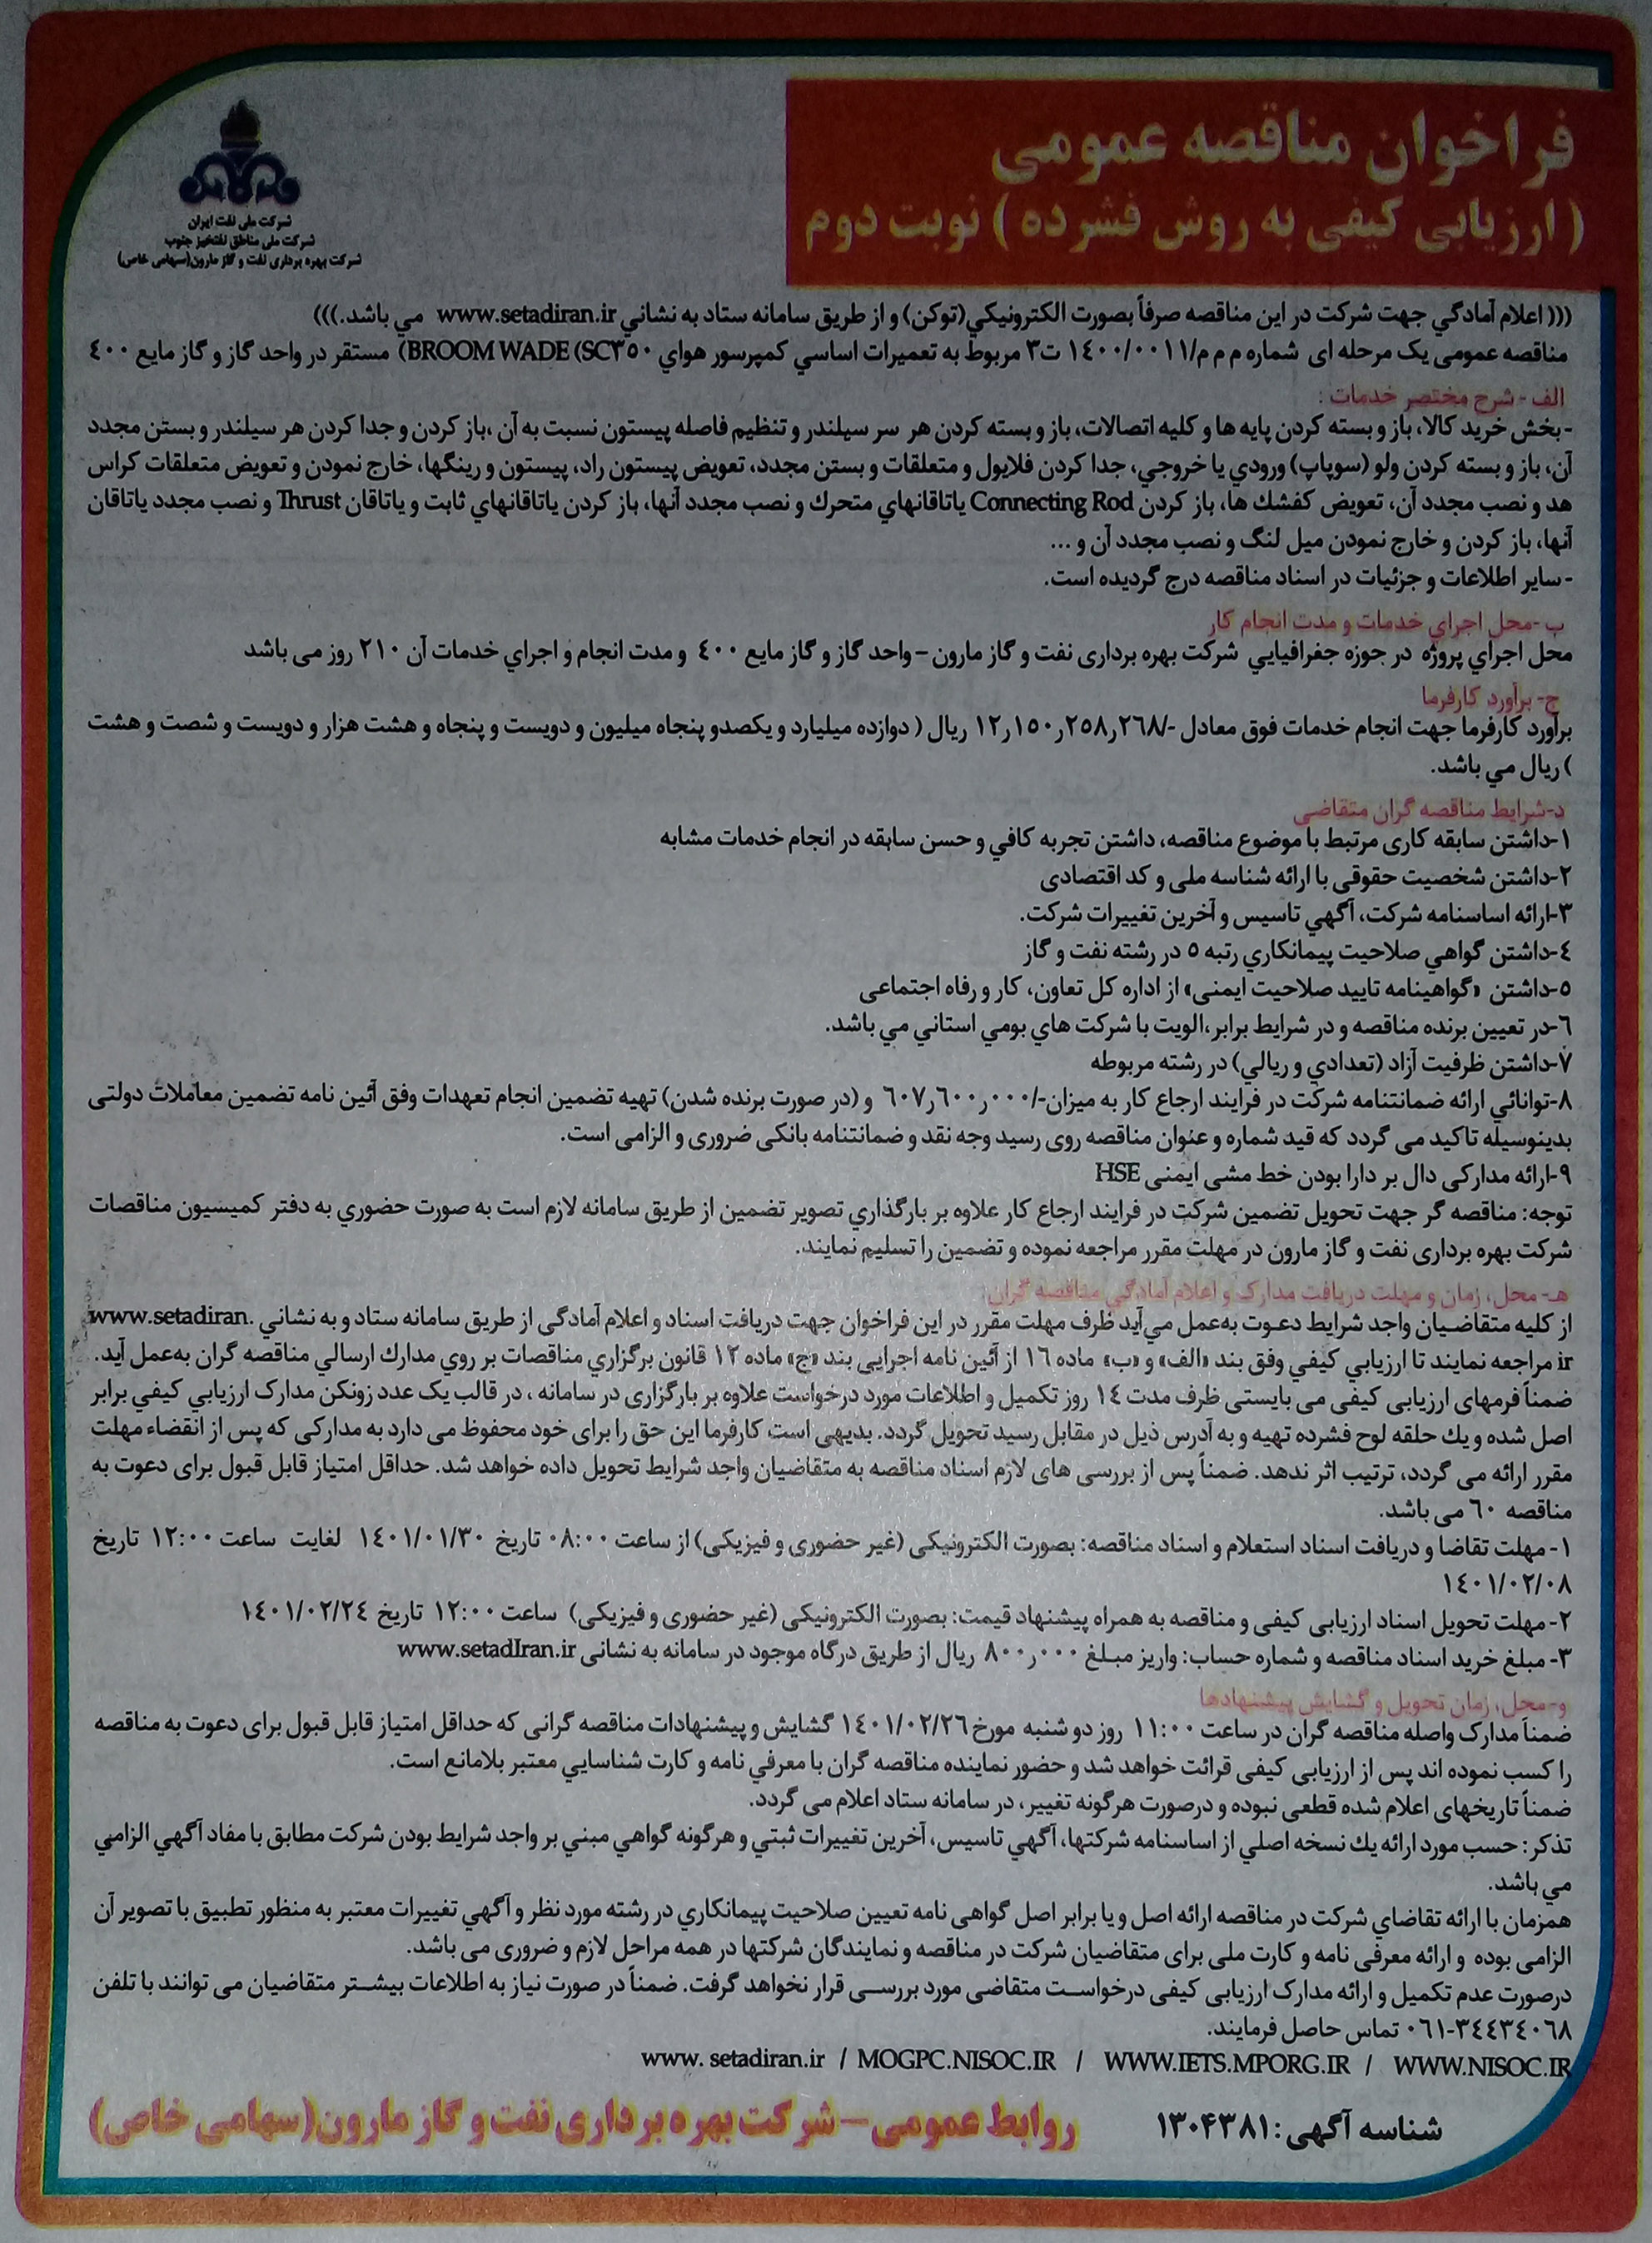 فراخوان مناقصه عمومی
( ارزیابی کیفی به روش فشرده ) نوبت دوم
شرکت ملی نفت ایران
شرکت ملی مناطق نفتخیز جنوب
شرکت بهره برداری نفت و گاز مارون(سهامی خاص)
((( اعلام آمادگي جهت شرکت در این مناقصه صرفاً بصورت الکترونیکي(توکن) و از طریق سامانه ستاد به نشاني www.setadiran.ir مي باشد.)))
مناقصه عمومی یک مرحله ای شماره م م م/۱٤۰۰/۰۰۱۱ ت۳ مربوط به تعمیرات اساسي کمپرسور هواي BROOM WADE (SC۳٥۰) مستقر در واحد گاز و گاز مایع ٤۰۰
الف - شرح مختصر خدمات :
-بخش خرید کالا، باز و بسته کردن پایه ها و کلیه اتصالات، باز و بسته کردن هر سر سیلندر و تنظیم فاصله پیستون نسبت به آن ،باز کردن و جدا کردن هر سیلندر و بستن مجدد
آن، باز و بسته کردن ولو (سوپاپ) ورودي یا خروجي، جدا کردن فلایول و متعلقات و بستن مجدد، تعویض پیستون راد، پیستون و رینگها، خارج نمودن و تعویض متعلقات کراس
هد و نصب مجدد آن، تعویض کفشك ها، باز کردن Connecting Rod یاتاقانهاي متحرك و نصب مجدد آنها، باز کردن یاتاقانهاي ثابت و یاتاقان Thrust و نصب مجدد یاتاقان
آنها، باز کردن و خارج نمودن میل لنگ و نصب مجدد آن و ...
-سایر اطلاعات و جزئیات در اسناد مناقصه درج گردیده است.
ب -محل اجراي خدمات و مدت انجام کار
محل اجراي پروژه در حوزه جغرافیایي شرکت بهره برداری نفت و گاز مارون – واحد گاز و گاز مایع ٤۰۰ و مدت انجام و اجراي خدمات آن ۲۱۰ روز می باشد
ج- برآورد کارفرما
برآورد کارفرما جهت انجام خدمات فوق معادل -/۱۲٫۱٥۰٫۲٥۸٫۲٦۸ ریال ( دوازده میلیارد و یکصدو پنجاه میلیون و دویست و پنجاه و هشت هزار و دویست و شصت و هشت
) ریال مي باشد.
د-شرایط مناقصه گران متقاضی
۱-داشتن سابقه کاری مرتبط با موضوع مناقصه، داشتن تجربه کافي و حسن سابقه در انجام خدمات مشابه
۲-داشتن شخصیت حقوقی با ارائه شناسه ملی و کد اقتصادی
۳-ارائه اساسنامه شرکت، آگهي تاسیس و آخرین تغییرات شرکت.
٤-داشتن گواهي صلاحیت پیمانکاري رتبه ٥ در رشته نفت و گاز
٥-داشتن «گواهینامه تایید صلاحیت ایمنی» از اداره کل تعاون، کار و رفاه اجتماعی
٦-در تعیین برنده مناقصه و در شرایط برابر،الویت با شرکت هاي بومي استاني مي باشد.
۷-داشتن ظرفیت آزاد (تعدادي و ریالي) در رشته مربوطه
۸-توانائي ارائه ضمانتنامه شرکت در فرایند ارجاع کار به میزان-/٦۰۷٫٦۰۰٫۰۰۰ و (در صورت برنده شدن) تهیه تضمین انجام تعهدات وفق آئین نامه تضمین معاملات دولتی
بدینوسیله تاکید می گردد که قید شماره و عنوان مناقصه روی رسید وجه نقد و ضمانتنامه بانکی ضروری و الزامی است.
۹-ارائه مدارکی دال بر دارا بودن خط مشی ایمنی HSE
توجه: مناقصه گر جهت تحویل تضمین شرکت در فرایند ارجاع کار علاوه بر بارگذاري تصویر تضمین از طریق سامانه لازم است به صورت حضوري به دفتر کمیسیون مناقصات
شرکت بهره برداری نفت و گاز مارون در مهلت مقرر مراجعه نموده و تضمین را تسلیم نمایند.
هـ- محل، زمان و مهلت دریافت مدارک و اعلام آمادگي مناقصه گران:
از کلیه متقاضیان واجد شرایط دعوت به‌عمل می‌آید ظرف مهلت مقرر در این فراخوان جهت دریافت اسناد و اعلام آمادگی از طریق سامانه ستاد و به نشاني www.setadiran.
ir مراجعه نمایند تا ارزیابي کیفي وفق بند «الف» و «ب» ماده ۱٦ از آئین نامه اجرایی بند «ج» ماده ۱۲ قانون برگزاري مناقصات بر روي مدارك ارسالي مناقصه گران به‌عمل آید.
ضمناً فرمهای ارزیابی کیفی می بایستی ظرف مدت ۱٤ روز تکمیل و اطلاعات مورد درخواست علاوه بر بارگزاری در سامانه ، در قالب یک عدد زونکن مدارک ارزیابي کیفي برابر
اصل شده و یك حلقه لوح فشرده تهیه و به آدرس ذیل در مقابل رسید تحویل گردد. بدیهی است کارفرما این حق را برای خود محفوظ می دارد به مدارکی که پس از انقضاء مهلت
مقرر ارائه می گردد، ترتیب اثر ندهد. ضمناً پس از بررسی های لازم اسناد مناقصه به متقاضیان واجد شرایط تحویل داده خواهد شد. حداقل امتیاز قابل قبول برای دعوت به
مناقصه ٦۰ می باشد.
۱- مهلت تقاضا و دریافت اسناد استعلام و اسناد مناقصه: بصورت الکترونیکی (غیر حضوری و فیزیکی) از ساعت ۰۸:۰۰ تاریخ ۱٤۰۱/۰۱/۳۰ لغایت ساعت ۱۲:۰۰ تاریخ
۱٤۰۱/۰۲/۰۸
۲- مهلت تحویل اسناد ارزیابی کیفی و مناقصه به همراه پیشنهاد قیمت: بصورت الکترونیکی (غیر حضوری و فیزیکی) ساعت ۱۲:۰۰ تاریخ ۱٤۰۱/۰۲/۲٤
۳- مبلغ خرید اسناد مناقصه و شماره حساب: واریز مبلغ ۸۰۰٫۰۰۰ ریال از طریق درگاه موجود در سامانه به نشانی www.setadIran.ir
و- محل، زمان تحویل و گشایش پیشنهادها
ضمناً مدارک واصله مناقصه گران در ساعت ۱۱:۰۰ روز دو شنبه مورخ ۱٤۰۱/۰۲/۲٦ گشایش و پیشنهادات مناقصه گرانی که حداقل امتیاز قابل قبول برای دعوت به مناقصه
را کسب نموده اند پس از ارزیابی کیفی قرائت خواهد شد و حضور نماینده مناقصه گران با معرفي نامه و کارت شناسایي معتبر بلامانع است.
ضمناً تاریخهای اعلام شده قطعی نبوده و درصورت هرگونه تغییر، در سامانه ستاد اعلام می گردد.
تذکر: حسب مورد ارائه یك نسخه اصلي از اساسنامه شرکتها، آگهي تاسیس، آخرین تغییرات ثبتي و هرگونه گواهي مبني بر واجد شرایط بودن شرکت مطابق با مفاد آگهي الزامي
مي باشد.
همزمان با ارائه تقاضاي شرکت در مناقصه ارائه اصل و یا برابر اصل گواهی نامه تعیین صلاحیت پیمانکاري در رشته مورد نظر و آگهي تغییرات معتبر به منظور تطبیق با تصویر آن
الزامی بوده و ارائه معرفی نامه و کارت ملی برای متقاضیان شرکت در مناقصه و نمایندگان شرکتها در همه مراحل لازم و ضروری می باشد.
درصورت عدم تکمیل و ارائه مدارک ارزیابی کیفی درخواست متقاضی مورد بررسی قرار نخواهد گرفت. ضمناً در صورت نیاز به اطلاعات بیشتر متقاضیان می توانند با تلفن
۰٦۱-۳٤٤۳٤۰٦۸ تماس حاصل فرمایند.
www. setadiran.ir / MOGPC.NISOC.IR / WWW.IETS.MPORG.IR / WWW.NISOC.IR
شناسه آگهی: ۱۳۰۴۳۸۱
روابط عمومی – شرکت بهره برداری نفت و گاز مارون(سهامی خاص)